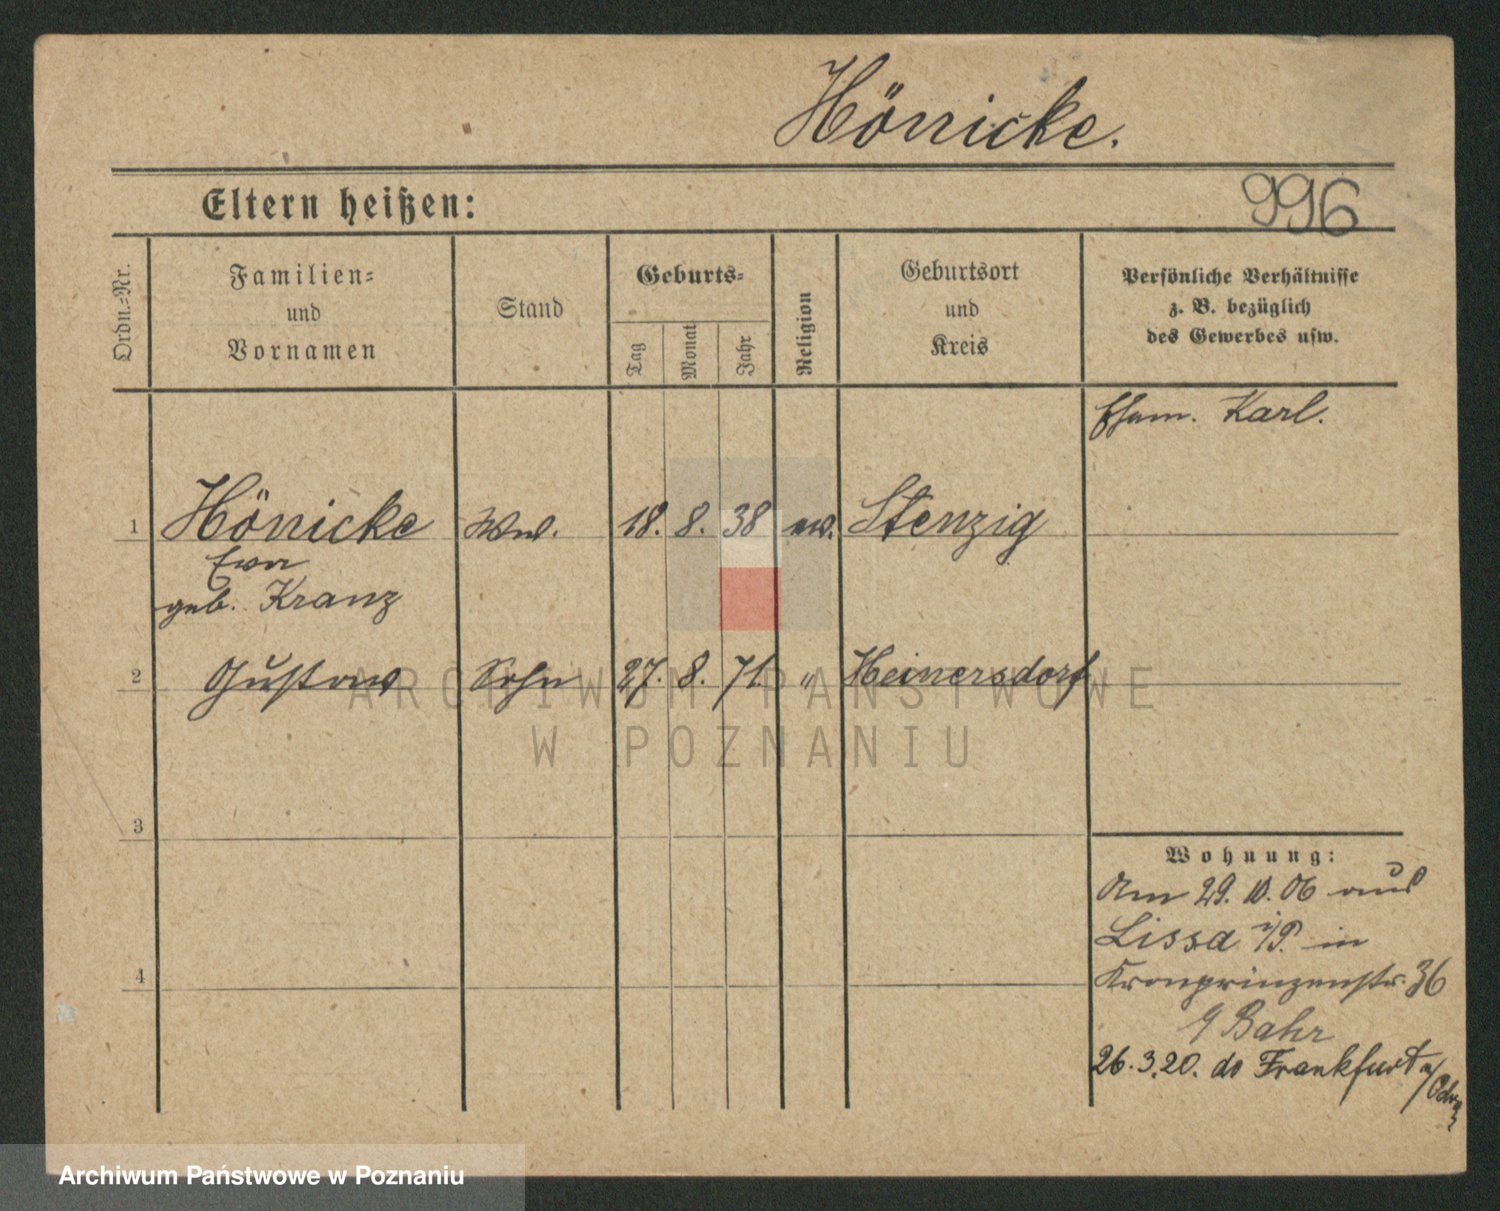 Hönicke.
Eltern heißen:
996
Ordn.-Nr.
Familien-
und
Vornamen
Stand
Geburts-
Tag
Monat
Jahr
Religion
Geburtsort
und
Kreis
Persönliche Verhältnisse
z. B. bezüglich
des Gewerbes usw.
Karl.
1 Hönicke Ww. 18. 8. 38 ev. Stenzig
Eva
geb. Kranz
2 Gustav Sohn 27. 8. 71. " Heinersdorf
3
4
Wohnung:
Am 29. 10. 06 aus
Lissa i/P. in
Kronprinzenstr. 36
b/ Bahr
26.3.20. do Frankfurt a/Oder
ARCHIWUM PAŃSTWOWE
W POZNANIU
Archiwum Państwowe w Poznaniu